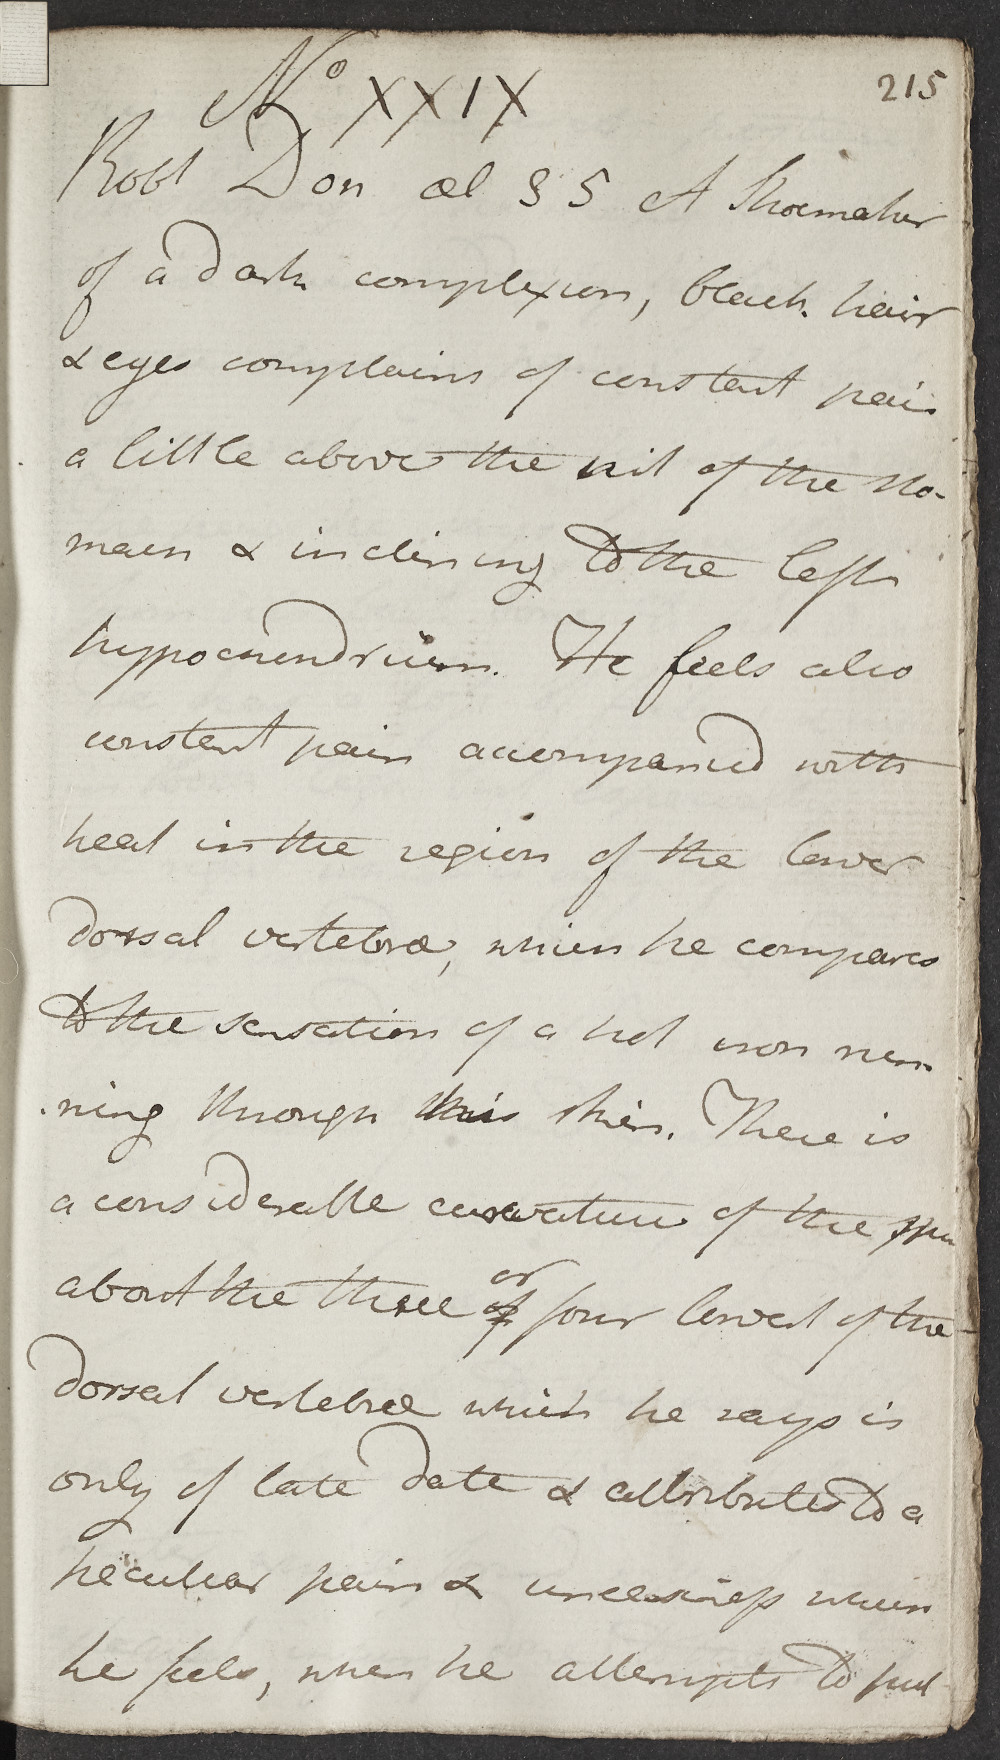 215
No XXIX
Robt Don æt 35 A Shoemaker
of a dark complexion, black hair
& eyes complains of constant pain
a little above the pit of the sto-
mach & inclining to the left
hypochondrium. He feels also
constant pain accompanied with
heat in the region of the lower
dorsal vertebræ, which he compares
to the sensation of a hot iron run
-ning through his skin. There is
a considerable curvature of the
about the three or four lowest of the
dorsal vertebræ which he says is
only of late date & attributes to a
peculiar pain & uneasiness which
he feels, when he attempts to